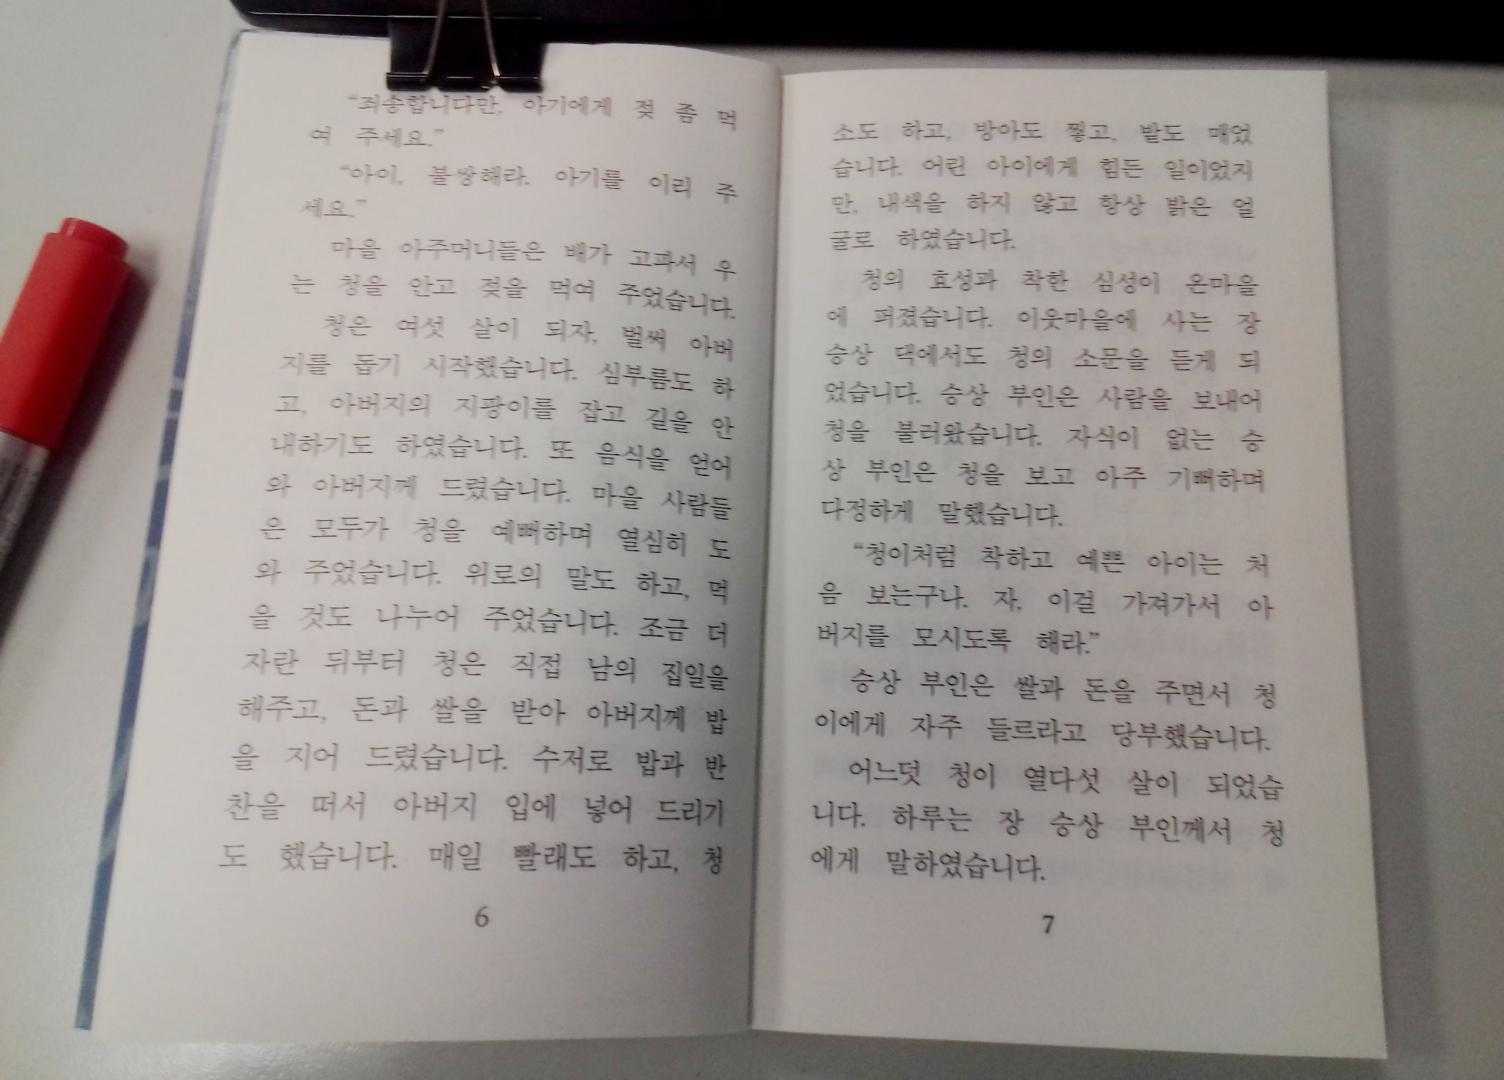 "죄송합니다만, 아기에게 젖 좀 먹
여 주세요."
"아이, 불쌍해라. 아기를 이리 주
세요."
마을 아주머니들은 배가 고파서 우
는 청을 안고 젖을 먹여 주었습니다.
청은 여섯 살이 되자, 벌써 아버
지를 돕기 시작했습니다. 심부름도 하
고, 아버지의 지팡이를 잡고 길을 안
내하기도 하였습니다. 또 음식을 얻어
와 아버지께 드렸습니다. 마을 사람들
은 모두가 청을 예뻐하며 열심히 도
와 주었습니다. 위로의 말도 하고, 먹
을 것도 나누어 주었습니다. 조금 더
자란 뒤부터 청은 직접 남의 집일을
해주고, 돈과 쌀을 받아 아버지께 밥
을 지어 드렸습니다. 수저로 밥과 반
찬을 떠서 아버지 입에 넣어 드리기
도 했습니다. 매일 빨래도 하고, 청
6
소도 하고, 방아도 찧고, 밭도 매었
습니다. 어린 아이에게 힘든 일이었지
만, 내색을 하지 않고 항상 밝은 얼
굴로 하였습니다.
청의 효성과 착한 심성이 온마을
에 퍼졌습니다. 이웃마을에 사는 장
승상 댁에서도 청의 소문을 듣게 되
었습니다. 승상 부인은 사람을 보내어
청을 불러왔습니다. 자식이 없는 승
상 부인은 청을 보고 아주 기뻐하며
다정하게 말했습니다.
"청이처럼 착하고 예쁜 아이는 처
음 보는구나. 자, 이걸 가져가서 아
버지를 모시도록 해라."
승상 부인은 쌀과 돈을 주면서 청
이에게 자주 들르라고 당부했습니다.
어느덧 청이 열다섯 살이 되었습
니다. 하루는 장 승상 부인께서 청
에게 말하였습니다.
7